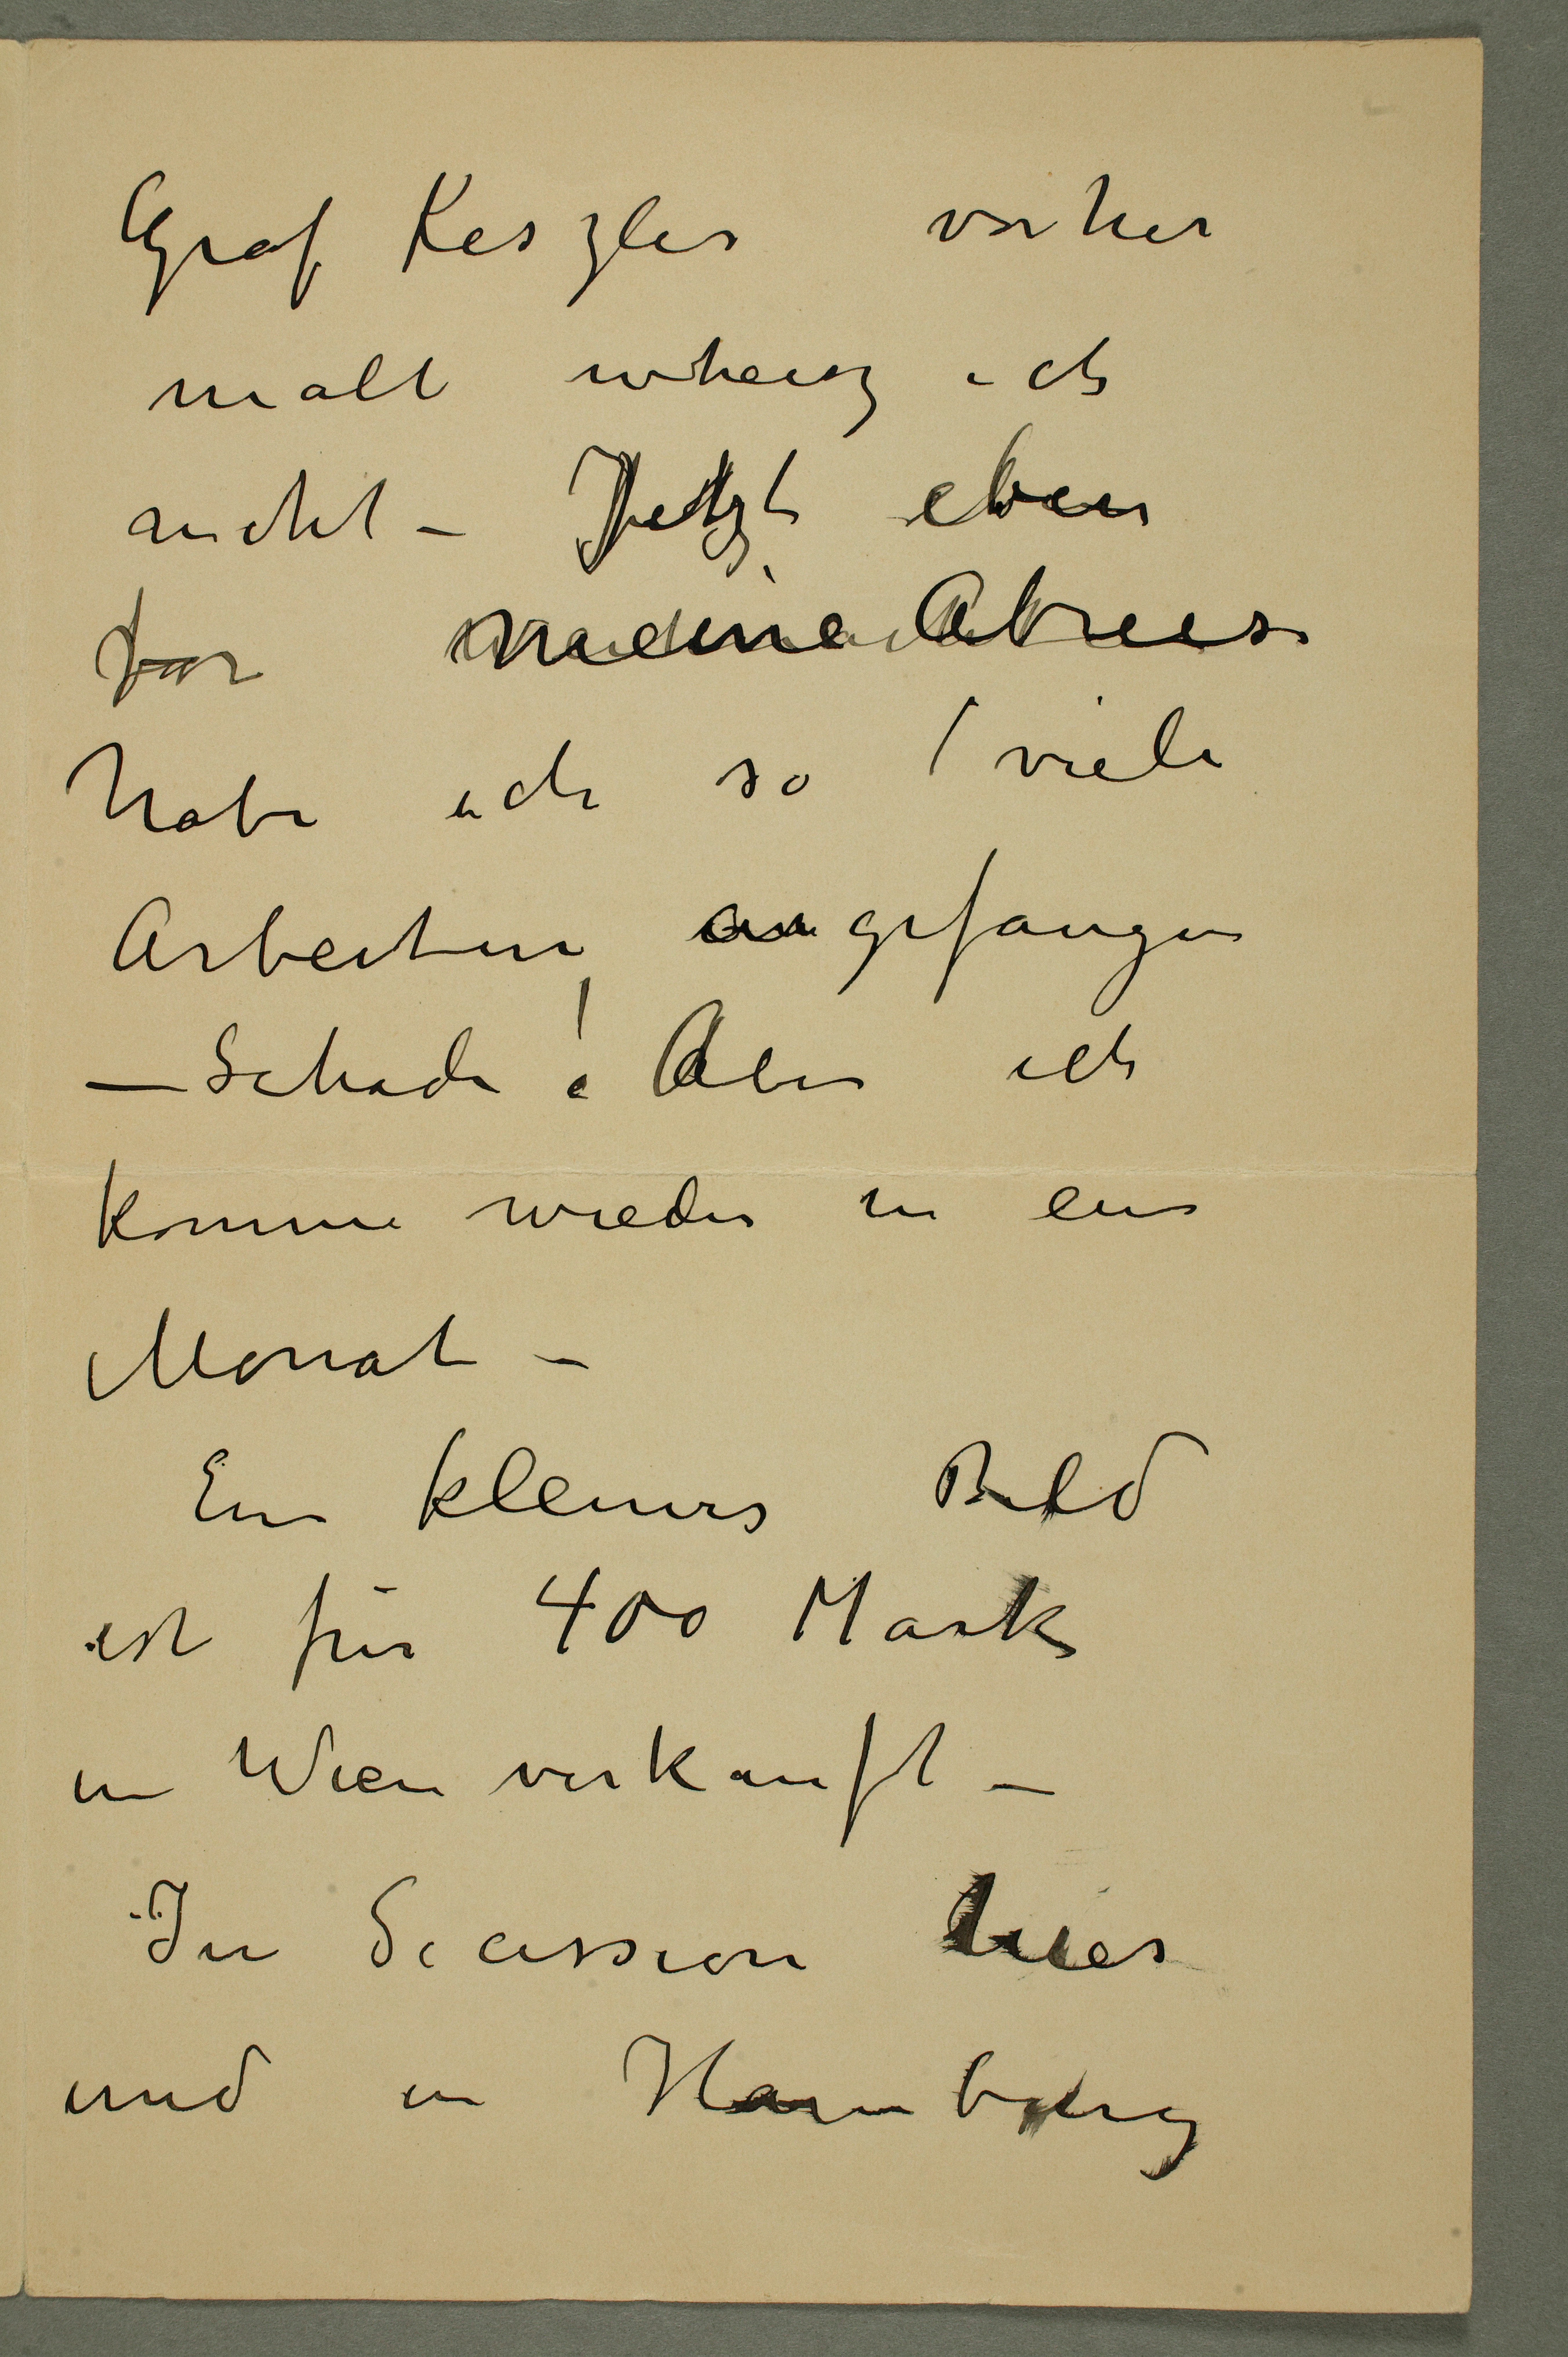 Graf Keszler vorher
malt wheisz ich
nicht – Jetzt eben
for meine Abreise
habe ich so viele
Arbeiten angefangen
– Schade! Aber ich
komme wieder in ein
Monat –
Ein kleines Bild
ist für 400 Mark
in Wien verkauft –
In Secession hier
und in Hamburg